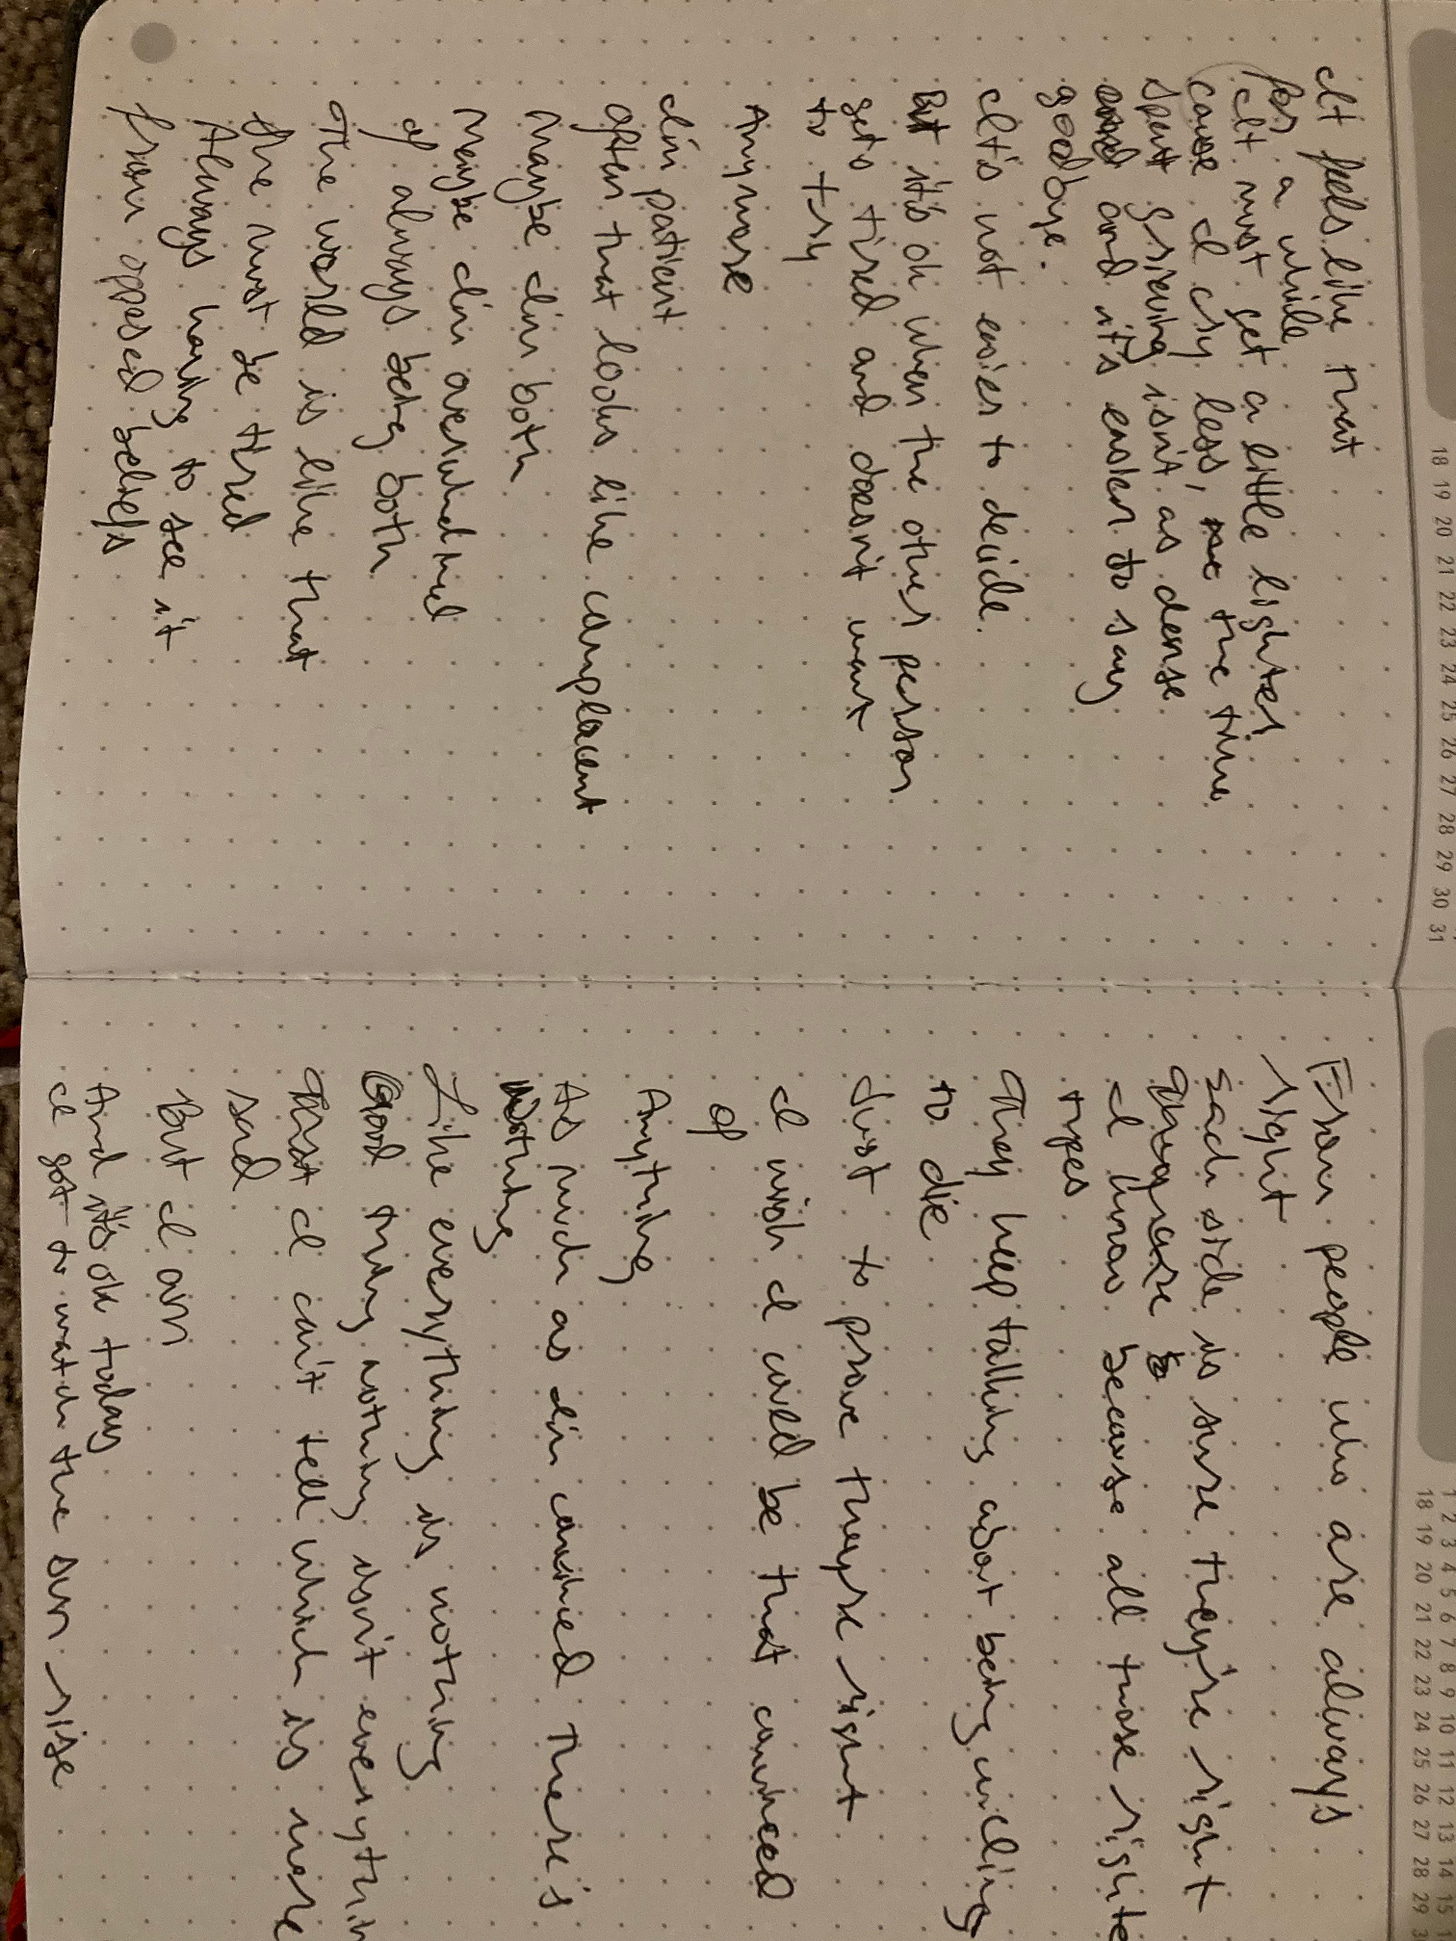 18 19 20 21 22 23 24 25 26 27 28 29 30 31
It feels like that
for a while
It must get a little lighter
cause I cry less, the time
spent grieving isn't as dense
and it's easier to say
goodbye.
It's not easier to decide.
But it's ok when the other person
gets tired and doesn't want
to try
Anymore
I'm patient
often that looks like complacent
maybe I'm both
Maybe I'm overwhelmed
of always being both
The world is like that
She must be tired
Always having to see it
from opposed beliefs
1 2 3 4 5 6 7 8 9 10 11 12 13 14 15
18 19 20 21 22 23 24 25 26 27 28 29
From people who are always
right
Each side is sure they're right
I know because all those righte
types
They keep talking about being willing
to die
Just to prove theyre right
I wish I could be that convinced
of
Anything
As much as I'm convinced There's
Nothing
Like everything is nothing
Good thing nothing isn't everythin
That I can't tell which is more
sad
But I am
And it's ok today
I got to watch the sun rise